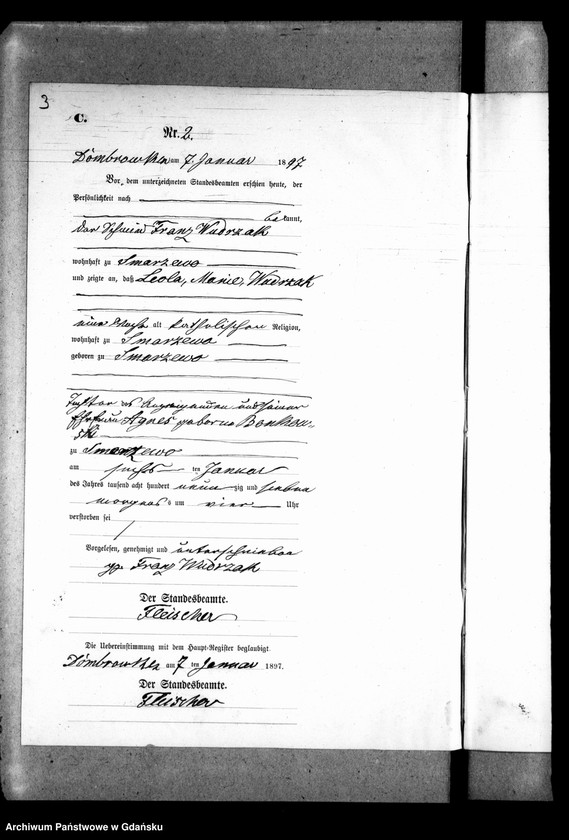 3
C.
Nr. 2.
Dombrowken am 7. Januar 1897
Vor dem unterzeichneten Standesbeamten erschien heute, der
Persönlichkeit nach
bekannt,
der Franz Wudrzak
wohnhaft zu Smarzewo
und zeigte an, daß Leola, Marie, Wudrzak
eine Woche alt katholischen Religion,
wohnhaft zu Smarzewo
geboren zu Smarzewo
Tochter des Anzeigenden und seiner
Ehefrau Agnes geborne Benkow-
ski
zu Smarzewo
am sechsten Januar
des Jahres tausend acht hundert neun zig und sieben
morgens um vier Uhr
verstorben sei
Vorgelesen, genehmigt und unterschrieben
gz. Franz Wudrzak
Der Standesbeamte.
Fleischer
Die Uebereinstimmung mit dem Haupt-Register beglaubigt.
Dombrowken am 7 ten Januar 1897.
Der Standesbeamte.
Fleischer
Archiwum Państwowe w Gdańsku